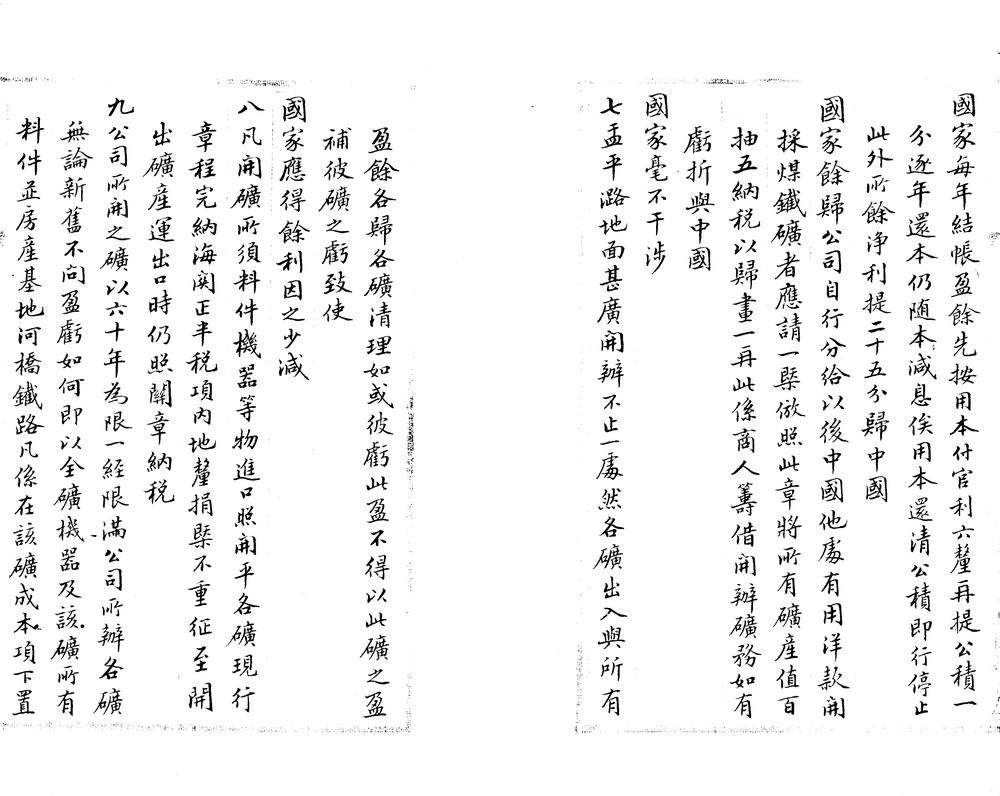 國家每年結帳盈餘先按用本付官利六釐再提公積一
分逐年還本仍随本減息俟用本還清公積即行停止
此外所餘净利提二十五分歸中國
國家餘歸公司自行分給以後中國他處有用洋款開
採煤鐵礦者應請一槩倣照此章將所有礦產值百
抽五納税以歸畫一再此係商人籌借開辦礦務如有
虧折與中國
國家毫不干涉
七盂平潞地面甚廣開辦不止一處然各礦出入與所有
盈餘各歸各礦清理如或彼虧此盈不得以此礦之盈
補彼礦之虧致使
國家應得餘利因之少減
八凡開礦所須料件機器等物進口照開平各礦現行
章程完納海関正半税項内地釐捐槩不重征至開
出礦產運出口時仍照關章納税
九公司所開之礦以六十年為限一經限滿公司所辦各礦
無論新舊不问盈虧如何即以全礦機器及該礦所有
料件並房產基地河橋鐵路凡係在該礦成本項下置